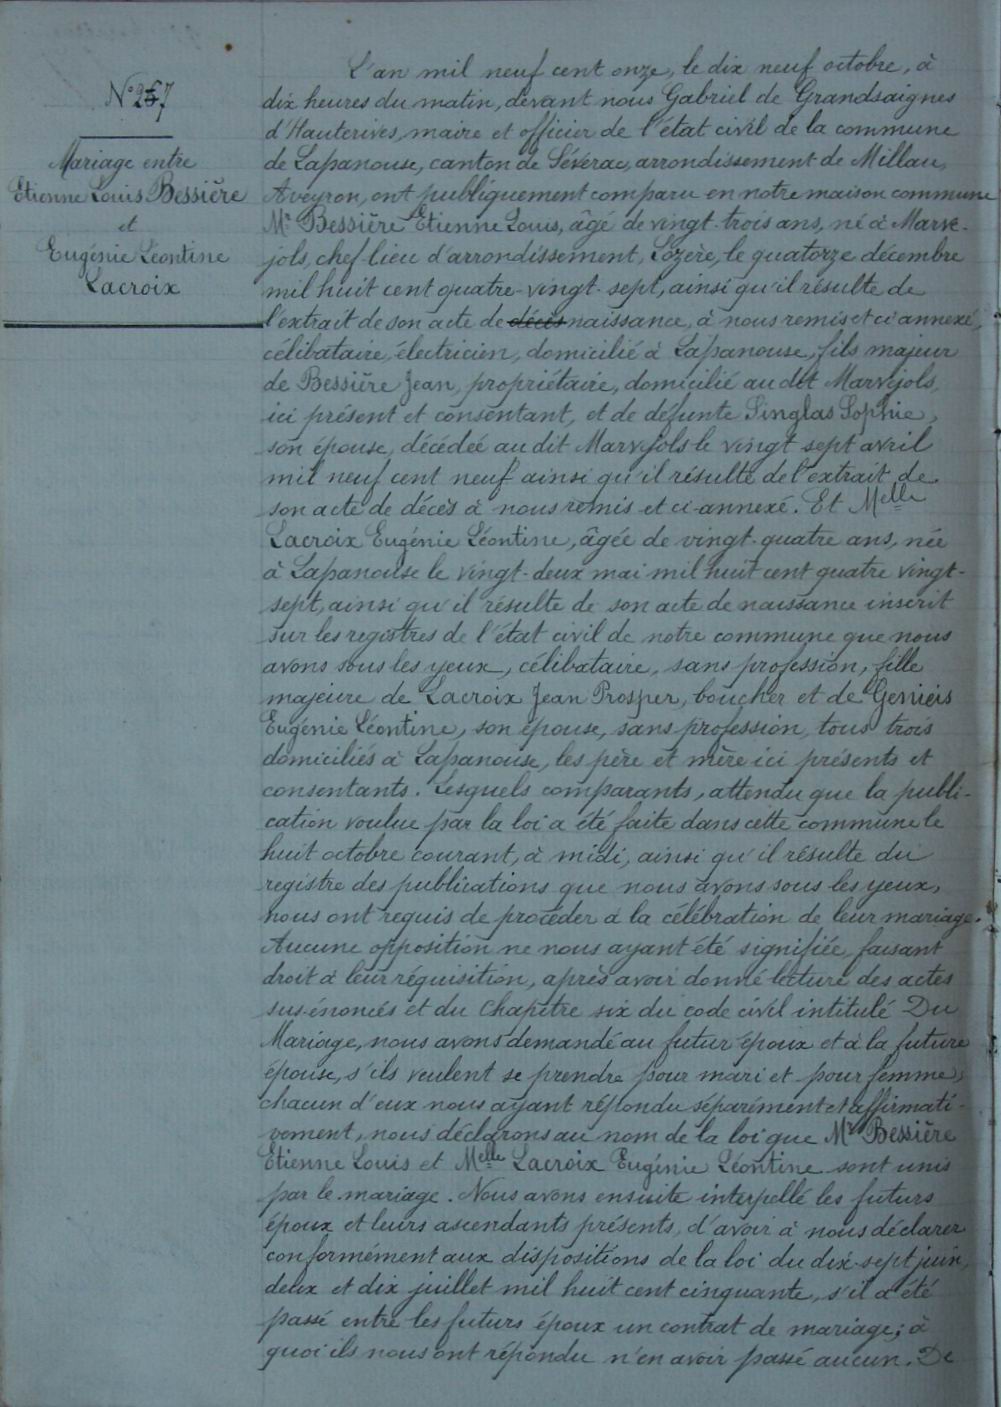 N° 267
Mariage entre
Etienne Louis Bessière
et
Eugénie Léontine
Lacroix
L'an mil neuf cent onze, le dix neuf octobre, à
dix heures du matin, devant nous Gabriel de Grandsaignes
d'Hauterives, maire et officier de l'état civil de la commune
de Lapanouse, canton de Sévérac, arrondissement de Millau,
Aveyron, ont publiquement comparu en notre maison commune
Mr Bessière Etienne Louis, âgé de vingt-trois ans, né à Marve-
jols, chef-lieu d'arrondissement, Lozère, le quatorze décembre
mil huit cent quatre-vingt-sept, ainsi qu'il résulte de
l'extrait de son acte de décès naissance, à nous remis et ci annexé,
célibataire, électricien, domicilié à Lapanouse, fils majeur
de Bessière Jean, propriétaire, domicilié au dit Marvejols,
ici présent et consentant, et de défunte Singlas Sophie,
son épouse, décédée au dit Marvejols le vingt sept avril
mil neuf cent neuf ainsi qu'il résulte de l'extrait de
son acte de décès à nous remis et ci-annexé. Et Melle
Lacroix Eugénie Léontine, âgée de vingt-quatre ans, née
à Lapanouse le vingt-deux mai mil huit cent quatre vingt-
sept, ainsi qu'il résulte de son acte de naissance inscrit
sur les registres de l'état civil de notre commune que nous
avons sous les yeux, célibataire, sans profession, fille
majeure de Lacroix Jean Prosper, boucher et de Genieis
Eugénie Léontine, son épouse, sans profession, tous trois
domiciliés à Lapanouse, les père et mère ici présents et
consentants. Lesquels comparants, attendu que la publi-
cation voulue par la loi a été faite dans cette commune le
huit octobre courant, à midi, ainsi qu'il résulte du
registre des publications que nous avons sous les yeux,
nous ont requis de procéder à la célébration de leur mariage.
Aucune opposition ne nous ayant été signifiée, faisant
droit à leur réquisition, après avoir donné lecture des actes
sus-énoncés et du chapitre six du code civil intitulé Du
Mariage, nous avons demandé au futur époux et à la future
épouse, s'ils veulent se prendre pour mari et pour femme,
chacun d'eux nous ayant répondu séparément et affirmati-
vement, nous déclarons au nom de la loi que Mr Bessière
Etienne Louis et Melle Lacroix Eugénie Léontine sont unis
par le mariage. Nous avons ensuite interpellé les futurs
époux et leurs ascendants présents, d'avoir à nous déclarer
conformément aux dispositions de la loi du dix-sept juin,
deux et dix juillet mil huit cent cinquante, s'il a été
passé entre les futurs époux un contrat de mariage; à
quoi ils nous ont répondu n'en avoir passé aucun. De